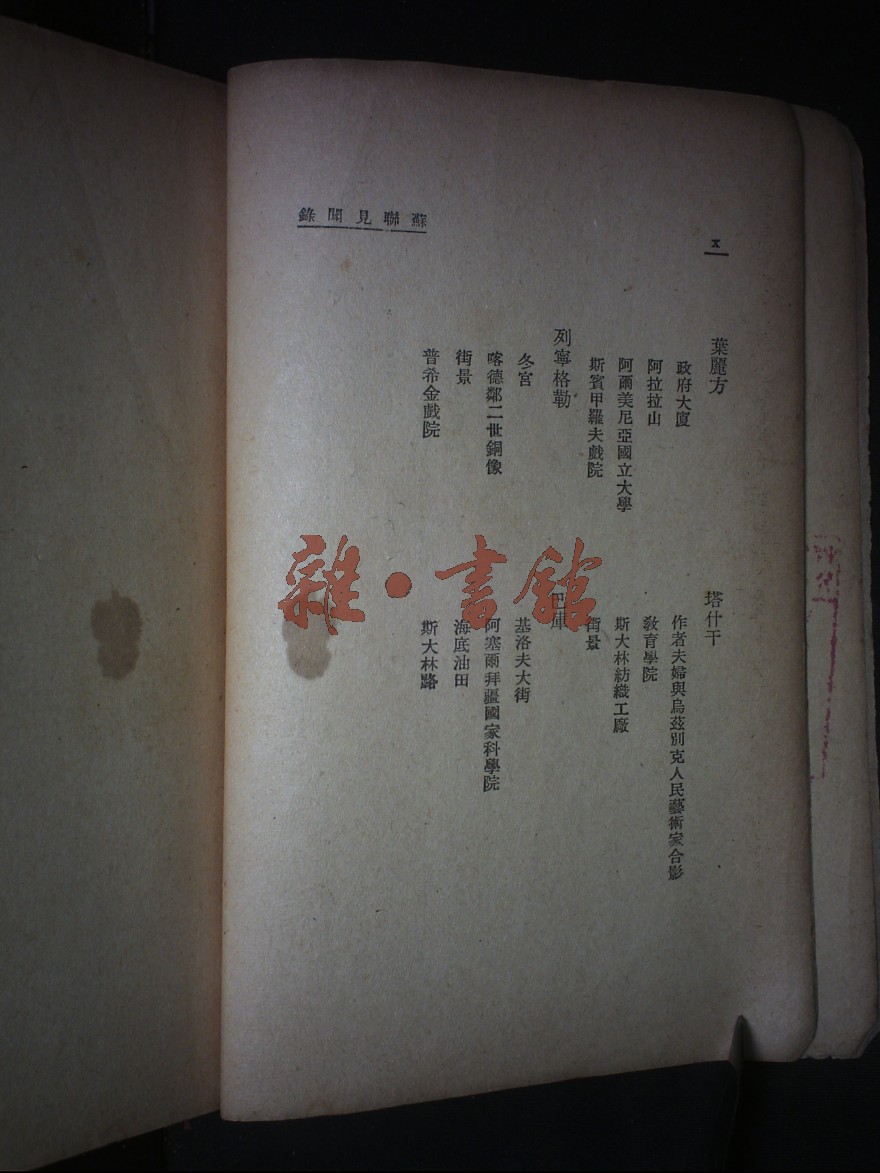 蘇聯見聞錄
X
葉麗方
政府大廈
阿拉拉山
阿爾美尼亞國立大學
斯賓甲羅夫戲院
列寧格勒
冬宮
喀德鄰二世銅像
街景
普希金戲院
塔什干
作者夫婦與烏茲別克人民藝術家合影
教育學院
斯大林紡織工廠
街景
巴庫
基洛夫大街
阿塞爾拜疆國家科學院
海底油田
斯大林路
雜·書館